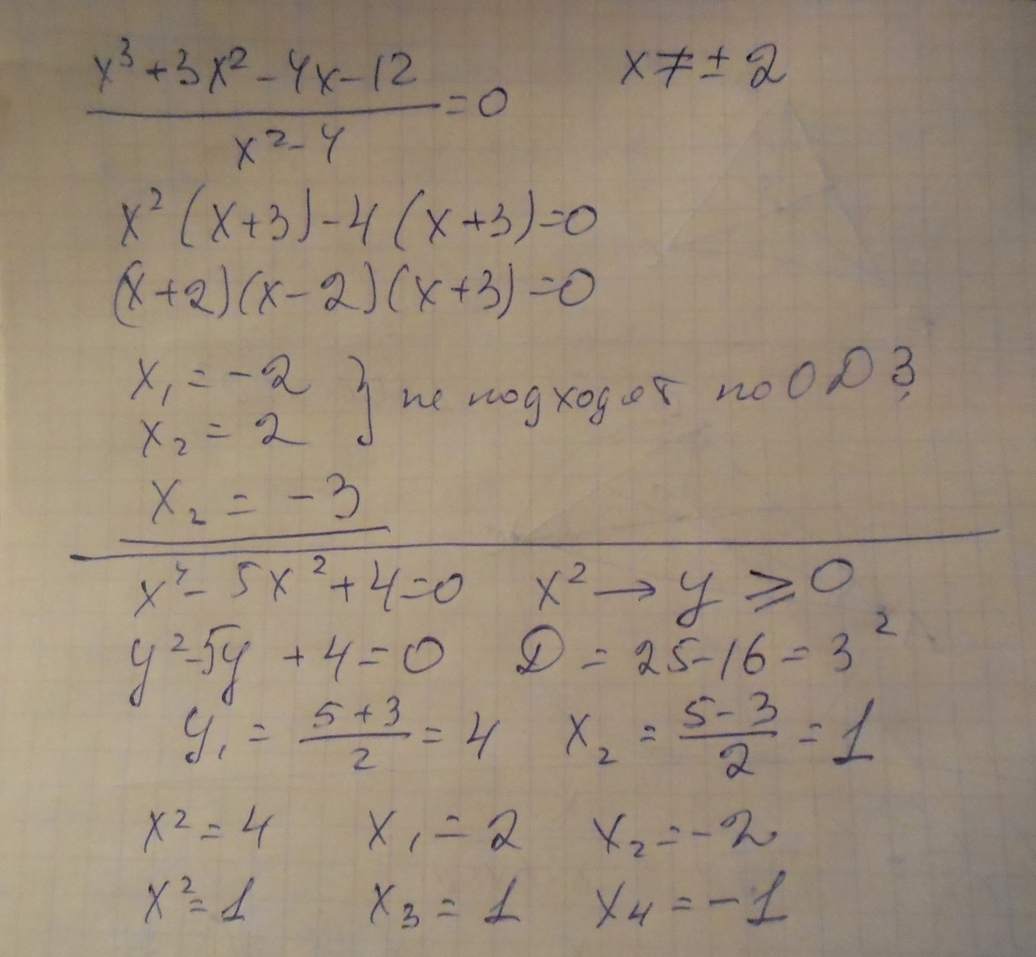 x³+3x²-4x-12 / x²-4 =0 x≠±2
x²(x+3)-4(x+3)=0
(x+2)(x-2)(x+3)=0
x₁=-2
x₂=2 } не подходят по ОДЗ,
x₂=-3
x⁴-5x²+4=0 x²→y⩾0
y²-5y+4=0 D=25-16=3²
y₁=5+3/2=4 x₂=5-3/2=1
x²=4 x₁=2 x₂=-2
x²=1 x₃=1 x₄=-1